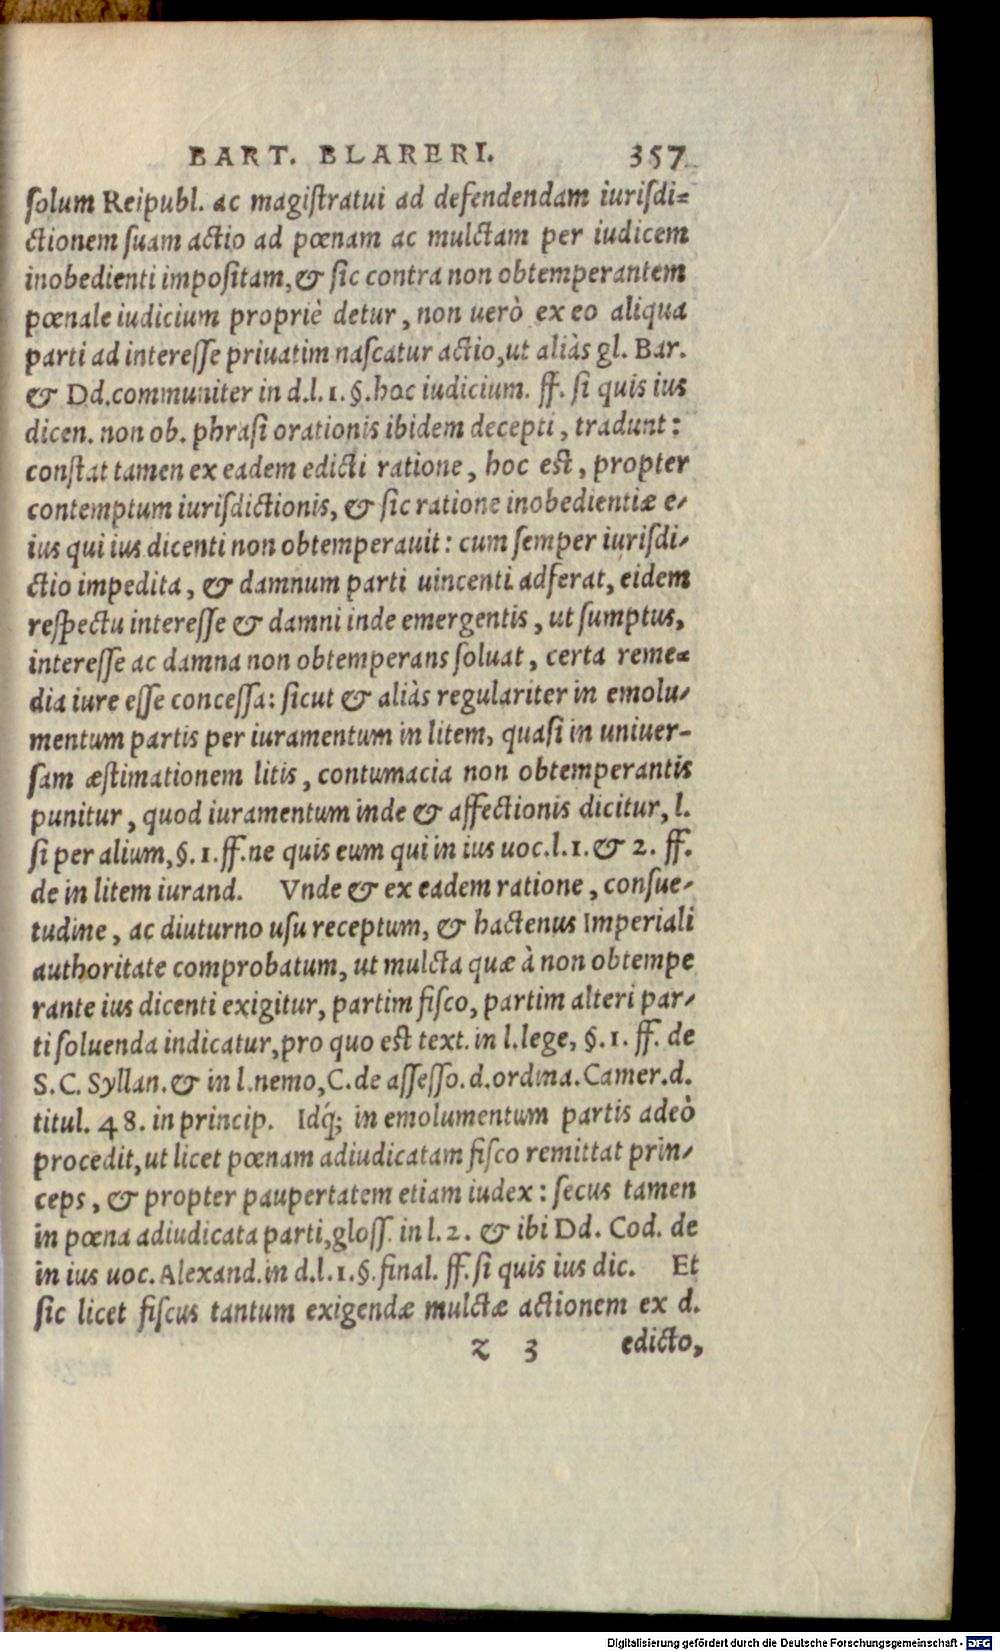 BART. BLARERI. 357
ſolum Reipubl. ac magiſtratui ad defendendam iuriſdi=
ctionem ſuam actio ad pœnam ac mulctam per iudicem
inobedienti impoſitam, & ſic contra non obtemperantem
pœnale iudicium propriè detur, non uerò ex eo aliqua
parti ad intereſſe priuatim naſcatur actio, ut aliàs gl. Bar.
& Dd. communiter in d.l. 1. §. hoc iudicium. ff. ſi quis ius
dicen. non ob. phraſi orationis ibidem decepti, tradunt:
conſtat tamen ex eadem edicti ratione, hoc eſt, propter
contemptum iuriſdictionis, & ſic ratione inobedientiæ e-
ius qui ius dicenti non obtemperauit: cum ſemper iuriſdi-
ctio impedita, & damnum parti uincenti adferat, eidem
reſpectu intereſſe & damni inde emergentis, ut ſumptus,
intereſſe ac damna non obtemperans ſoluat, certa reme=
dia iure eſſe conceſſa: ſicut & aliàs regulariter in emolu-
mentum partis per iuramentum in litem, quaſi in uniuer-
ſam æſtimationem litis, contumacia non obtemperantis
punitur, quod iuramentum inde & affectionis dicitur, l.
ſi per alium, §. 1. ff. ne quis eum qui in ius uoc. l. 1. & 2. ff.
de in litem iurand. Vnde & ex eadem ratione, conſue-
tudine, ac diuturno uſu receptum, & hactenus Imperiali
authoritate comprobatum, ut mulcta quæ à non obtempe
rante ius dicenti exigitur, partim fiſco, partim alteri par-
ti ſoluenda indicatur, pro quo eſt text. in l. lege, §. 1. ff. de
S. C. Syllan. & in l. nemo, C. de aſſeſſo. d. ordina. Camer. d.
titul. 48. in princip. Idq́; in emolumentum partis adeò
procedit, ut licet pœnam adiudicatam fiſco remittat prin-
ceps, & propter paupertatem etiam iudex: ſecus tamen
in pœna adiudicata parti, gloſſ. in l. 2. & ibi Dd. Cod. de
in ius uoc. Alexand. in d. l. 1. §. final. ff. ſi quis ius dic. Et
ſic licet fiſcus tantum exigendæ mulctæ actionem ex d.
z 3 edicto,
Digitalisierung gefördert durch die Deutsche Forschungsgemeinschaft - DFG